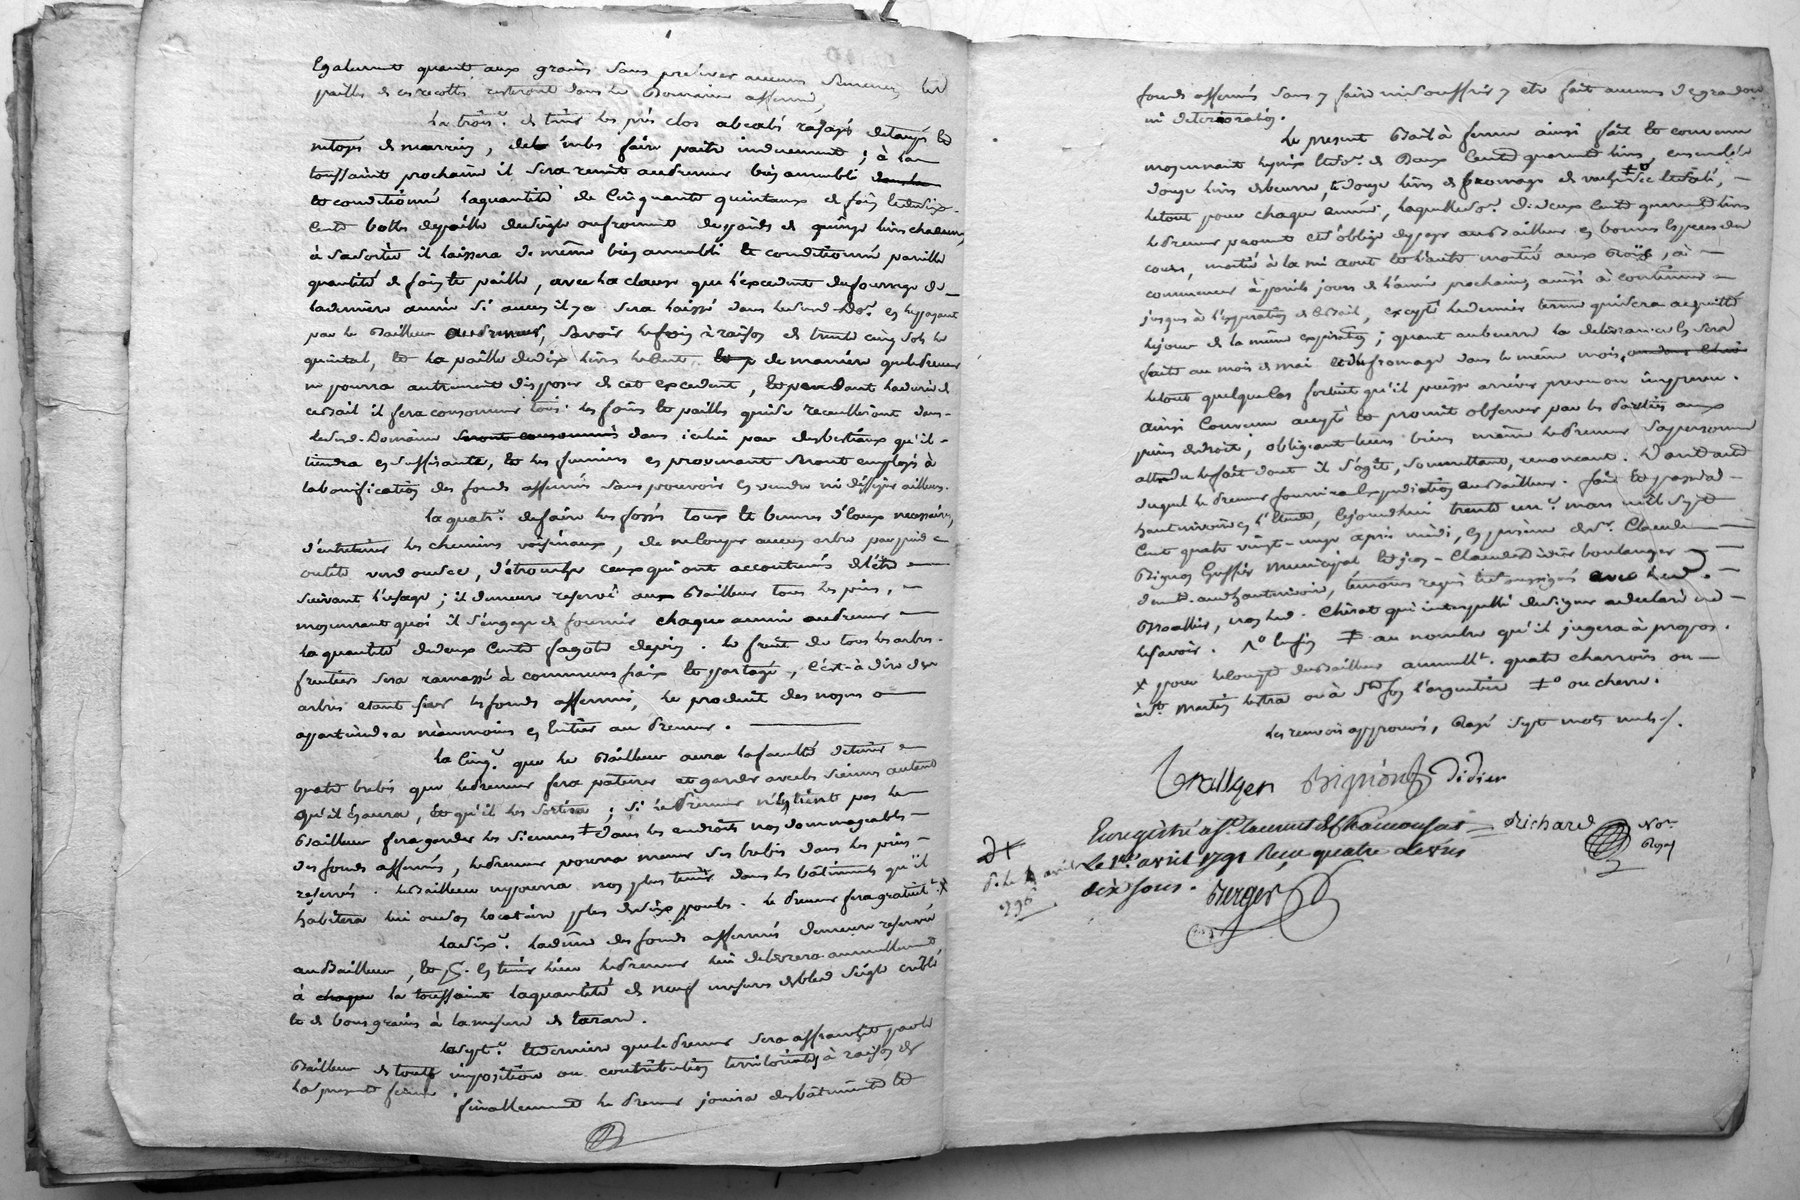 Egalement quant aux grains sans prélever aucunes semences, les
pailles de ces recoltes resteront dans le Domaine affermé,
La trois.e de tenir les prés clos abealés rasés detaupés et
netoyés de marrein, de les faire paître induement ; à la
toussaint prochaine il sera remit au preneur bien ameubli
et conditionné la quantité de Cinquante quintaux de foin et de dix
Cent bottes de paille de seigle ou froment du poids de quinze livres chacune,
à sa sortie il laissera de même bien ameubli et conditionné pareille
quantité de foin et paille, avec la clause que l'excedent du fourrage de
la derniere année si aucun il y a sera laissé dans led. Do.e en luy payant
par le Bailleur au preneur, Savoir le foin à raison de trente cinq sols le
quintal, et la paille de dix livres le Cent de maniere que le preneur
ne pourra autrement disposer de cet excedent, et pendant la durée de
ce Bail il fera consommer tous les foins et pailles qui se recueilliront dans
led. Domaine seront consommés dans icelui par des bestiaux qu'il
tiendra en suffisante, et les fumiers en provenant seront employés à
la bonification des fonds affermés sans pouvoir en vendre ni divertir ailleurs.
la quatr.e de faire les fossés tous et bennes d'eaux necessaires,
d'entretenir les chemins voisinaux, de ne couper aucun arbre par pied
ou tête verd ou sec, d'étroncher ceux qui ont accoutumés d'être
suivant l'usage ; il demeure reservé au Bailleur tous les pins,
moyennant quoi il s'engage de fournir chaque année au preneur
la quantité de deux Cent fagots de pin. le fruit de tous les arbres
fruitiers sera ramassé à communs frais et partagé, c'est-à-dire des
arbres etant sur les fonds affermés, le produit des noyers
appartiendra néanmoins en Entier au preneur.
la Cinq.e que le Bailleur aura la faculté de tenir
quatre brebis que le preneur fera pâturer et garder avec les siennes autant
qu'il en aura, et qu'il les sortira ; si le preneur n'en tient pas le
Bailleur fera garder les siennes ‡ dans les endroits non dommageables
des fonds affermés, le preneur pourra mener ses brebis dans les pins
reservés. le Bailleur ne pourra non plus tenir dans les bâtiments qu'il
habitera lui ou son locataire plus de dix poules. le preneur fera gratuit.t X
la Six.e la dîme des fonds affermés demeure reservée
au Bailleur, et en tenir lieu le preneur lui delivrera annuellement
à chaque la toussaint la quantité de neuf mesures de bled seigle criblé
et de bons grains à la mesure de tarare.
la sept.e et derniere que le preneur sera affranchit par le
Bailleur de toute imposition ou contribution territoriale à raison de
la présente ferme.
finallement le preneur jouira des bâtiments et
fonds affermés sans y faire ni souffrir y etre fait aucunes degradations
ni deterioration.
Le present Bail à ferme ainsi fait et convenu
moyennant le prix et so.e de Deux Cent quarente livres, ensemble
douze livres de beurre, et douze livres de fromage de vache ‡° sec et salé,
le tout pour chaque année, laquelle so.e de deux Cent quarente livres
le preneur promet et s'oblige de payer au Bailleur en bonnes especes du
cours, moitié à la mi aout et l'autre moitié aux Rois, à
commencer à pareils jours de l'année prochaine, ainsi à continuer
jusqu'à l'expiration du Bail, excepté le dernier terme qui sera acquitté
le jour de la même expiration ; quant au beurre la delivrance en sera
faite au mois de mai et du fromage dans le même mois,
le tout quelque Cas fortuit qu'il puisse arriver prevu ou imprevu.
ainsi Convenu accepté et promit observer par les parties aux
peines de droit ; obligeant leurs biens même le preneur sa personne
attendu le fait dont il s'agit, soumettant, renonceant. Dont acte
duquel le preneur fournira expedition au Bailleur. fait et passé à
hauterivoire en l'Etude, le jourdhui trente un.e mars mille sept
Cent quatre vingt-onze après midi, en presence de s.r Claude
Bignon Greffier municipal et de jean-Claude Didier boulanger
demt. aud. hauterivoire, temoins requis et soussignés avec led.
Brallier, non led. Chirat qui interpellé de signer a declaré ne
le savoir. ‡ au nombre qu'il jugera à propos.
X pour le compte du Bailleur annuell.t quatre charrois ou
à St. Martin lestra ou à Ste foy l'argentiere ‡° ou chevre.
les renvois approuvés, Rayé sept mots nuls.
Bignon Didier
Enregistré à St. laurent de Chamousset Richard No.re Royal
le 1er avril 1791 Reçu quatre livres
dix sous. Berger